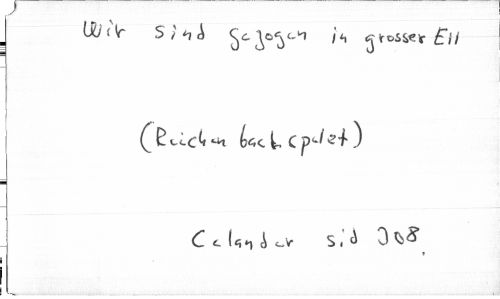 Wir sind gezogen in grosser Ell
(Reichenbachspalet)
Celander sid 308.